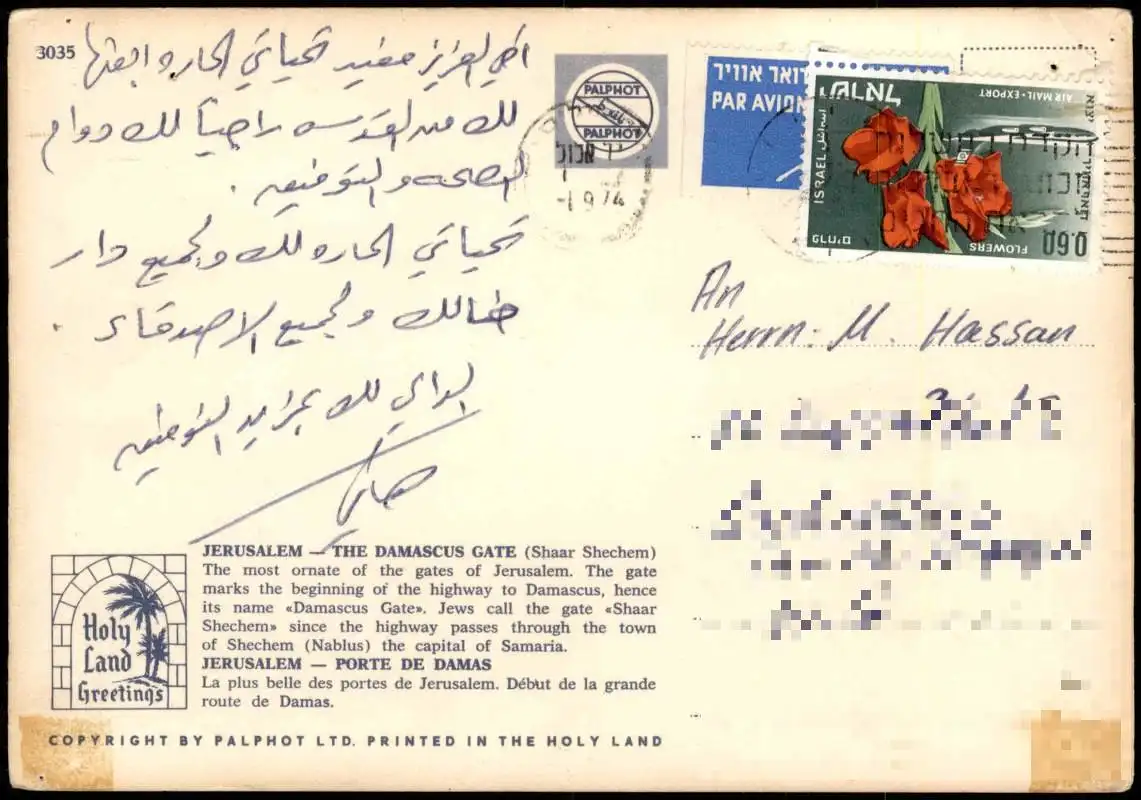 3035
اخي العزيز مفيد تحياتي الحاره ابعثها
لك من القدس راجياً لك دوام
الصحه والتوفيق .
تحياتي الحاره لك ولجميع دار
خالك ولجميع الاصدقاء .
الداعي لك بمزيد التوفيق
PALPHOT
פלפוט
PALPHOT
-1 9 74
דואר אוויר
PAR AVION
ישראל
ISRAEL
اسرائيل
AIR MAIL·EXPORT
FLOWERS
פרחים
0.60
An
Herrn: M. Hassan
Holy
Land
Greetings
JERUSALEM — THE DAMASCUS GATE (Shaar Shechem)
The most ornate of the gates of Jerusalem. The gate
marks the beginning of the highway to Damascus, hence
its name «Damascus Gate». Jews call the gate «Shaar
Shechem» since the highway passes through the town
of Shechem (Nablus) the capital of Samaria.
JERUSALEM — PORTE DE DAMAS
La plus belle des portes de Jerusalem. Début de la grande
route de Damas.
COPYRIGHT BY PALPHOT LTD. PRINTED IN THE HOLY LAND